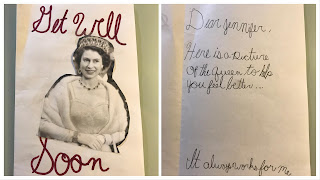 Get Well
Soon
Dear Jennifer,
Here is a picture
of the queen to help
you feel better...
It always works for me